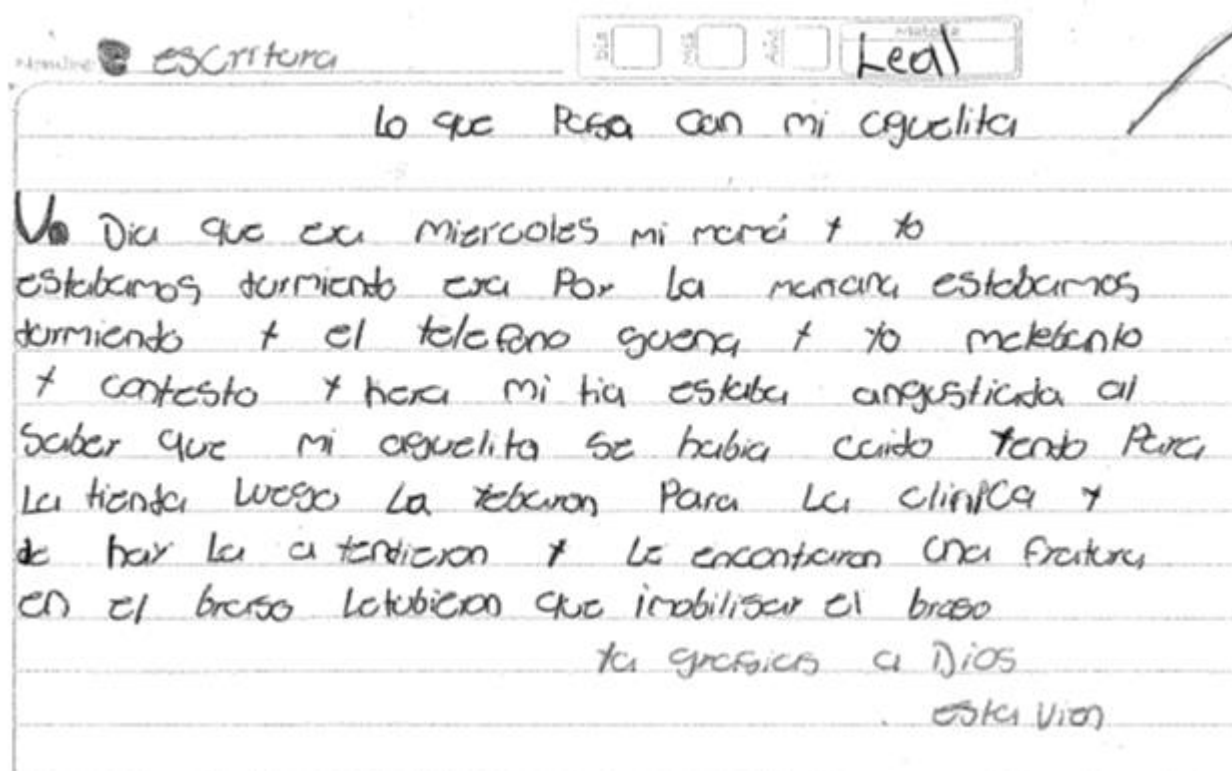 Nombre escritura Día Mes Año Materia Leal
Lo que Pasa con mi aguelita
Un Dia que era miercoles mi mamá y yo
estabamos durmiendo era Por La manana estabamos
durmiendo y el telefono suena y yo melebanto
y contesto y hera mi tia estaba angustiada al
saber que mi aguelita se habia caido yendo Para
La tienda Luego La yebaron Para La clinica y
de hay La a tendieron y Le encontraron una fratura
en el braso Letubieron que imobilisar el braso
ya grasias a Dios
esta vien